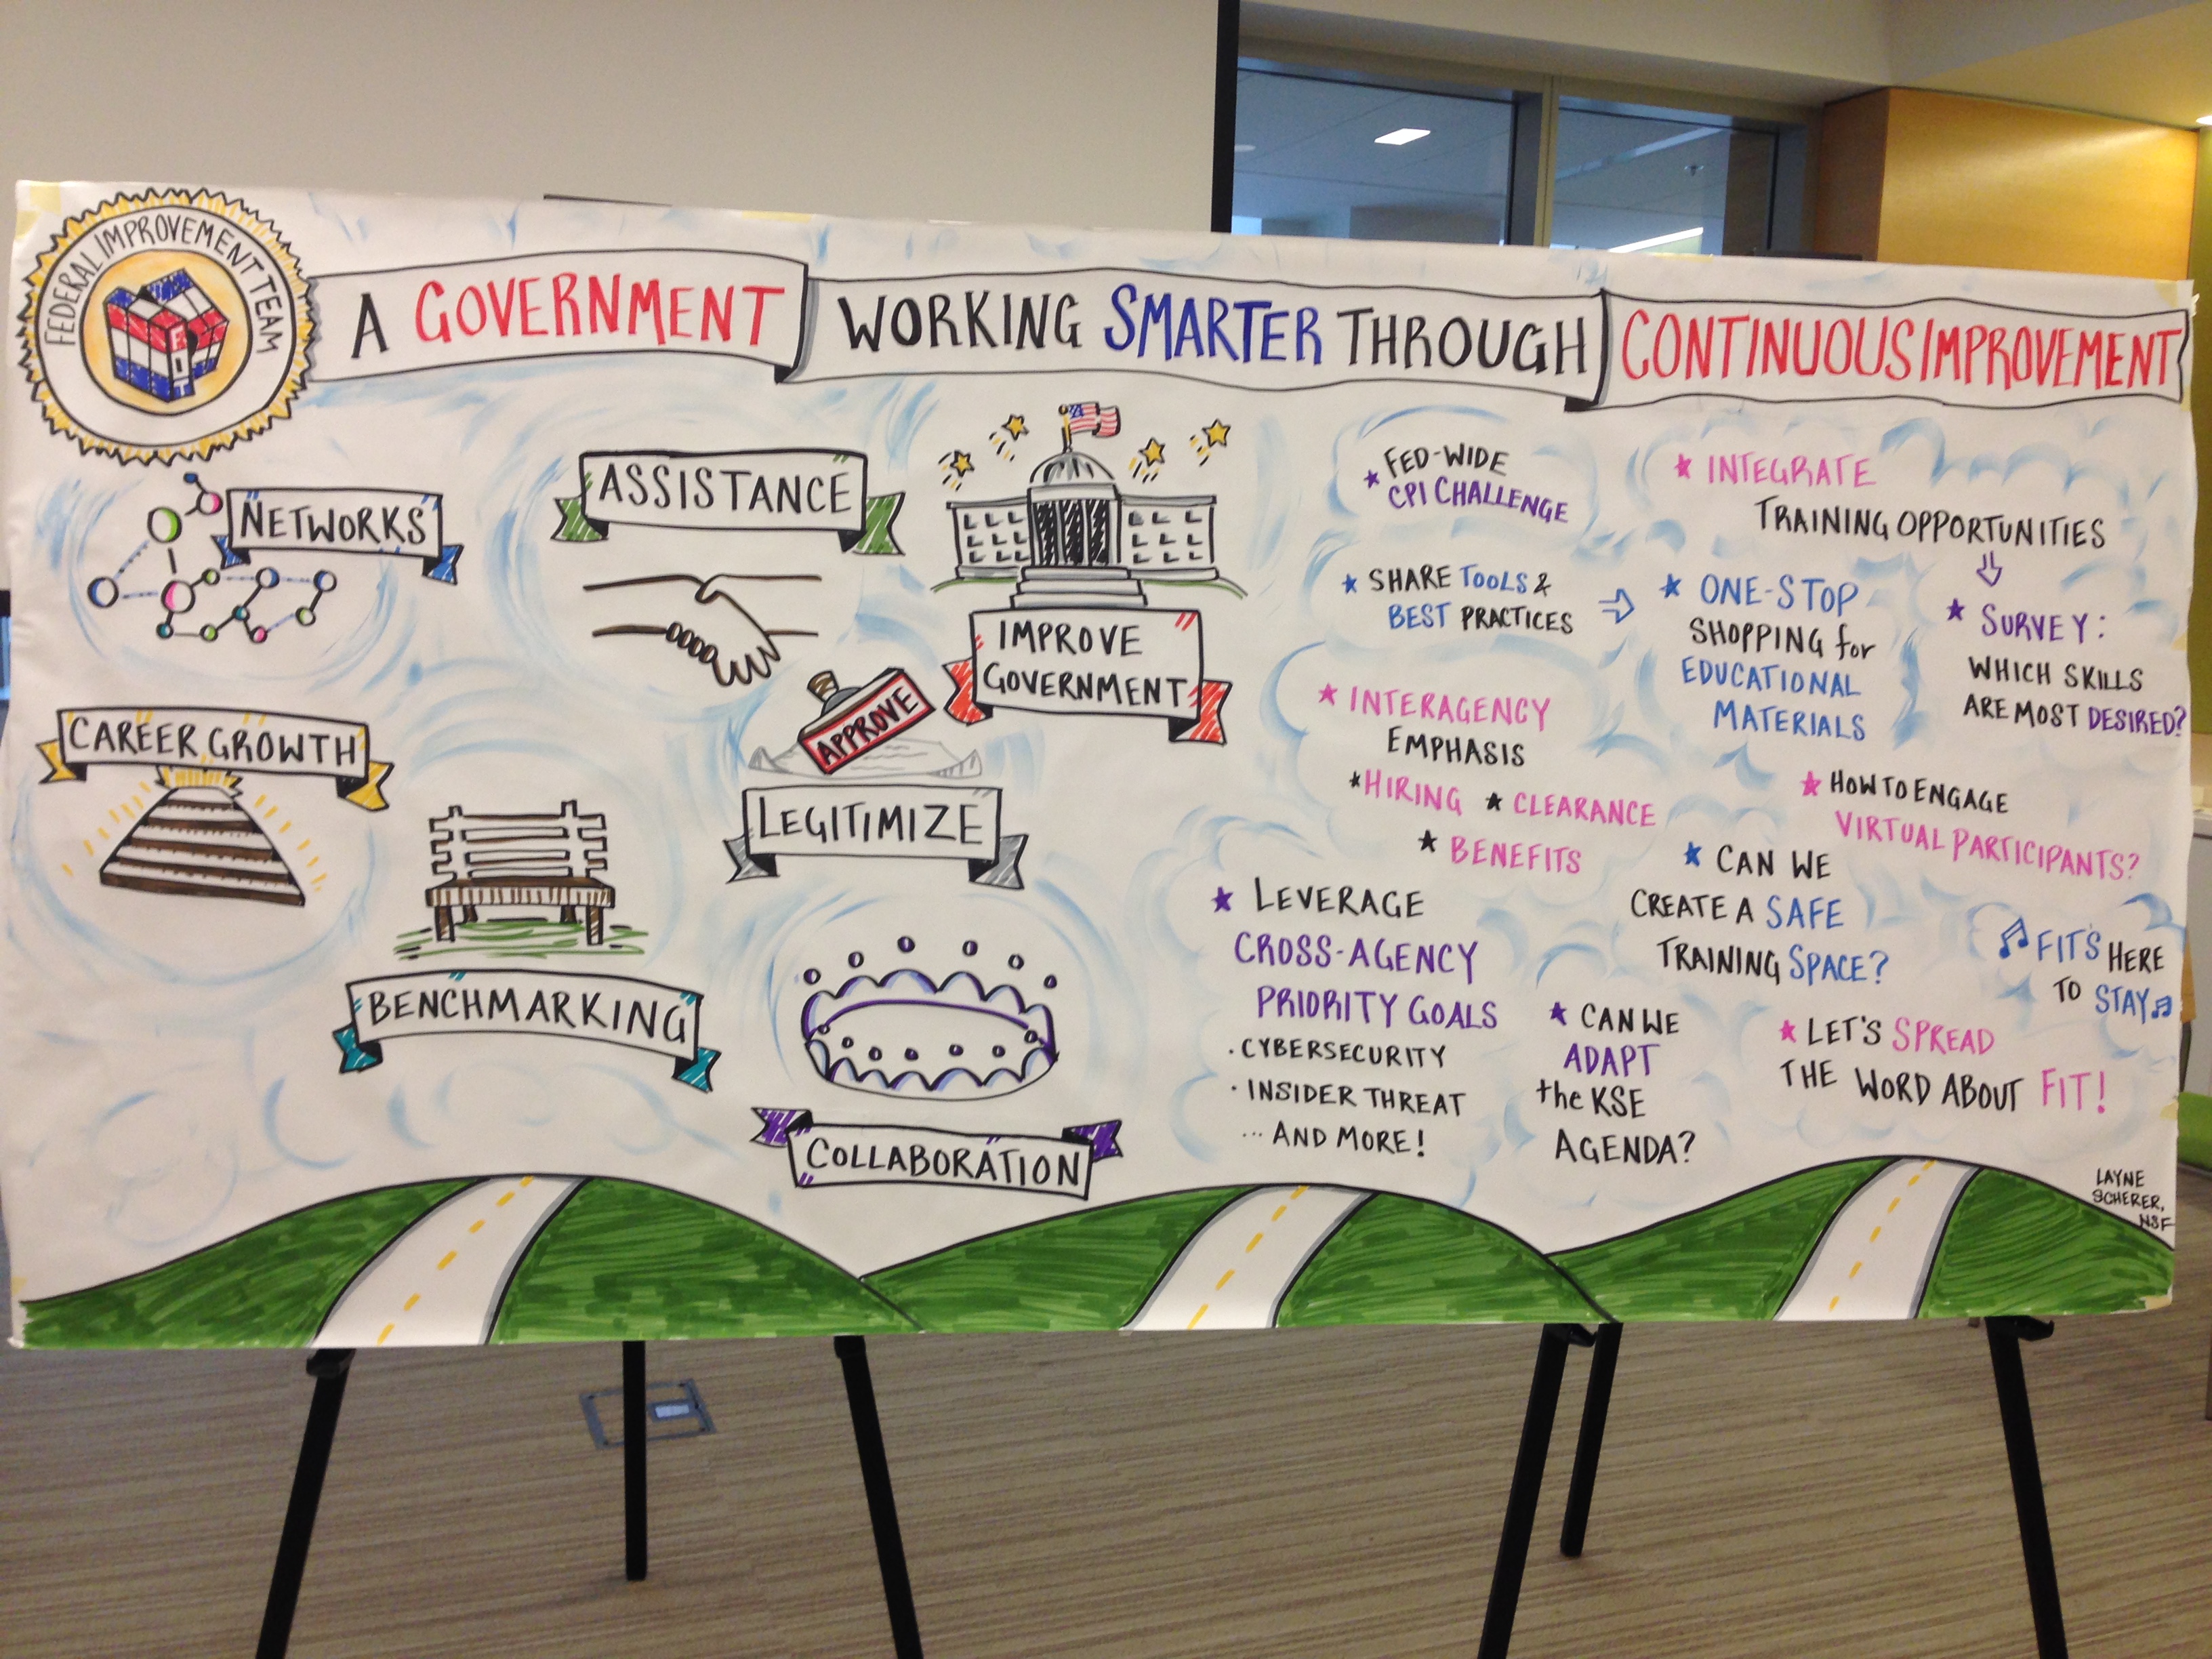 FEDERAL IMPROVEMENT TEAM
FIT
A GOVERNMENT WORKING SMARTER THROUGH CONTINUOUS IMPROVEMENT
NETWORKS
ASSISTANCE
IMPROVE
GOVERNMENT
CAREER GROWTH
APPROVE
LEGITIMIZE
BENCHMARKING
COLLABORATION
FED-WIDE
CPI CHALLENGE
INTEGRATE
TRAINING OPPORTUNITIES
SHARE TOOLS &
BEST PRACTICES
ONE-STOP
SHOPPING for
EDUCATIONAL
MATERIALS
SURVEY:
WHICH SKILLS
ARE MOST DESIRED?
INTERAGENCY
EMPHASIS
HIRING CLEARANCE
BENEFITS
HOW TO ENGAGE
VIRTUAL PARTICIPANTS?
CAN WE
CREATE A SAFE
TRAINING SPACE?
LEVERAGE
CROSS-AGENCY
PRIORITY GOALS
· CYBERSECURITY
· INSIDER THREAT
... AND MORE!
CAN WE
ADAPT
the KSE
AGENDA?
FIT'S HERE
TO STAY
LET'S SPREAD
THE WORD ABOUT FIT!
LAYNE
SCHERER,
NSF